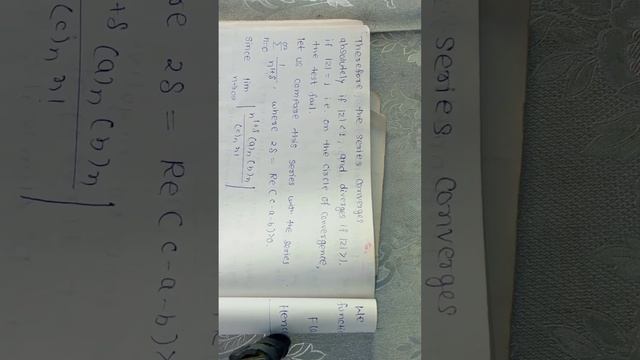 Therefore, the series converges
absolutely if |z|<1, and diverges if |z|>1.
if |z|=1 i.e. on the circle of convergence,
the test fail.
let us compare this series with the series
∞
Σ 1/n^{1+δ}, where 2δ = Re(c-a-b)>0.
n=0
since lim n→∞ | n^{1+δ} (a)n (b)n / (c)n n! |
We
functi
Henc